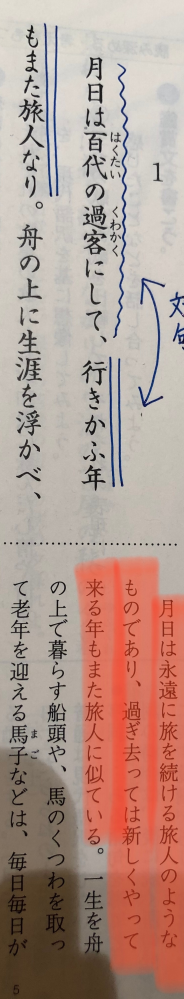 1
月日は百代の過客にして、行きかふ年
もまた旅人なり。舟の上に生涯を浮かべ、
はくたい
くわかく
対句
月日は永遠に旅を続ける旅人のような
ものであり、過ぎ去っては新しくやって
来る年もまた旅人に似ている。一生を舟
の上で暮らす船頭や、馬のくつわを取っ
て老年を迎える馬子などは、毎日毎日が
まご
5